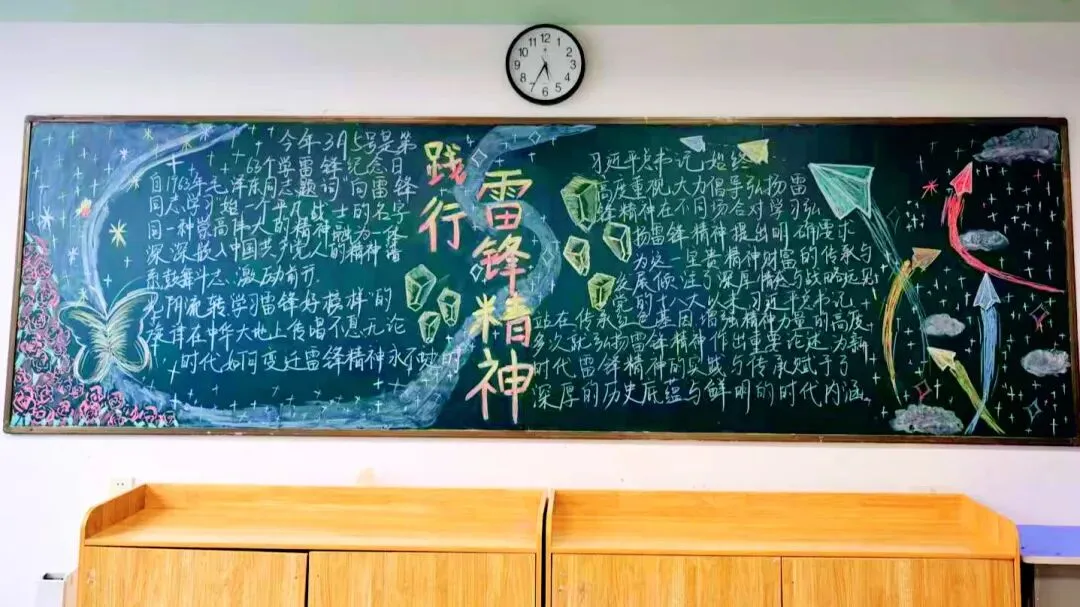 12
11
1
10
2
9
3
8
4
7
5
6
今年3月5号是第
63个学雷锋纪念日
自1963年毛泽东同志题词"向雷锋
同志学习"始一个平凡战士的名字
同一种崇高伟大的精神融为一体
深深嵌入中国共产党人的精神谱
系鼓舞斗志、激动前行
光阴流转学习雷锋好榜样的
旋律在中华大地上传唱不息无论
时代如何变迁雷锋精神永不
践行
雷锋精神
习近平总书记始终
高度重视、大力倡导弘扬雷
锋精神在不同场合对学习弘
扬雷锋精神提出明确要求
为这一宝贵精神财富的传承与
发展倾注了深厚情怀与战略远见
党的十八大以来习近平总书记
站在传承红色基因、增强精神力量的高度
多次就弘扬雷锋精神作出重要论述为新
时代雷锋精神的实践与传承赋予了
深厚的历史底蕴与鲜明的时代内涵。